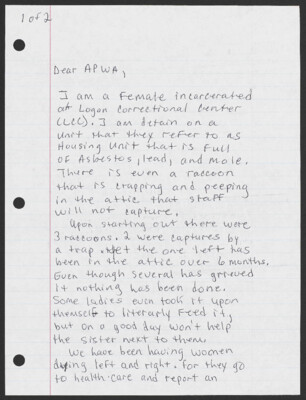 1 of 2
Dear APWA,
I am a Female incarcerated
at Logan Correctional Center
(LCC). I am detain on a
unit that they refer to as
Housing Unit that is full
of Asbestos, lead, and mole.
There is even a raccoon
that is crapping and peeping
in the attic that staff
will not capture.
Upon starting out there were
3 raccoons. 2 were captures by
a trap. Yet the one left has
been in the attic over 6 months.
Even though several has grieved
it nothing has been done.
Some ladies even took it upon
themself to literary feed it,
but on a good day won't help
the sister next to them.
We have been having women
dying left and right. For they go
to health-care and report an